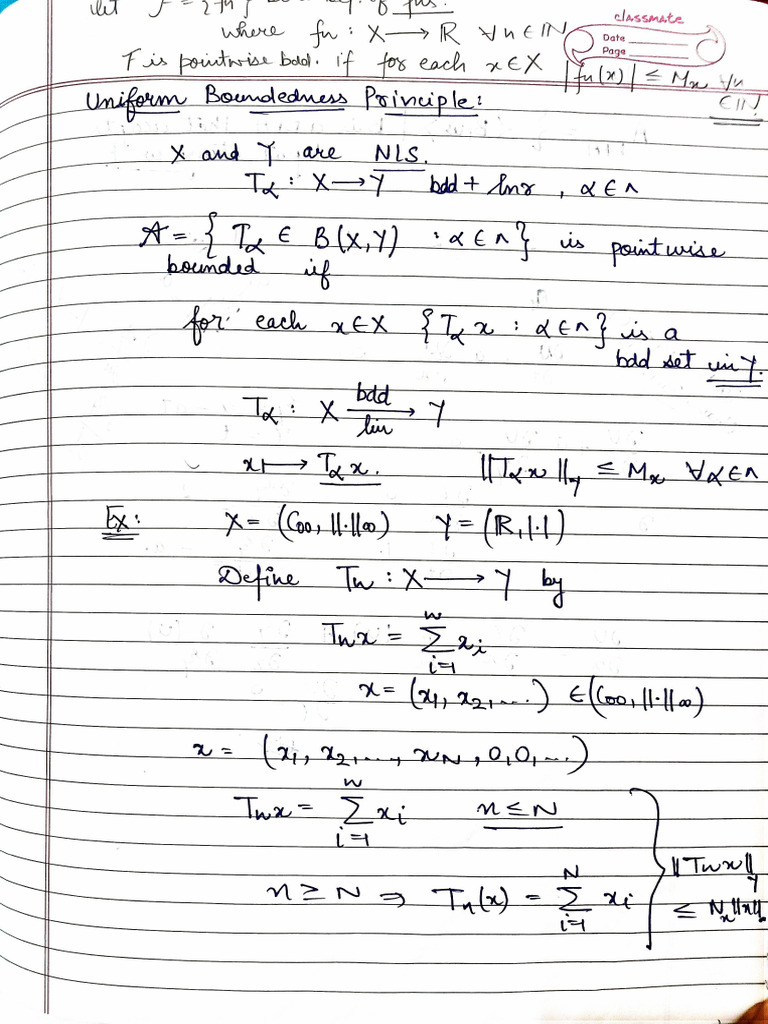 let F = {fn} be a seq. of fns.
where fn : X → R ∀ n ∈ IN
classmate
Date
Page
F is pointwise bdd. if for each x ∈ X |fn(x)| ≤ Mx ∀n ∈ IN.
Uniform Boundedness Principle:
X and Y are NLS.
Tα : X → Y bdd + lnr , α ∈ Λ
A = { Tα ∈ B(X,Y) : α ∈ Λ } is pointwise
bounded if
for each x ∈ X {Tα x : α ∈ Λ} is a
bdd set in Y.
Tα : X →(bdd / lin) Y
x ↦ Tα x. ||Tα x||_Y ≤ Mx ∀ α ∈ Λ
Ex: X = (C₀₀, ||·||∞) Y = (R, |·|)
Define Tn : X → Y by
Tn x = Σ_{i=1}^{n} xi
x = (x₁, x₂, ....) ∈ (C₀₀, ||·||∞)
x = (x₁, x₂, ..., x_N, 0, 0, ...)
Tn x = Σ_{i=1}^{n} xi n ≤ N
n ≥ N ⇒ Tn(x) = Σ_{i=1}^{N} xi
||Tn x||_Y
≤ N_x ||x||